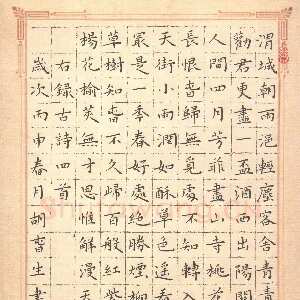 渭城朝雨浥輕塵客舍青青
勸君更盡一盃酒西出陽關
人間四月芳菲盡山寺桃花
長恨旾歸無覓處不知轉入
天街小雨潤如酥草色遙看
最是一季春好處絕勝煙柳
草樹知旾不久歸百般紅紫
楊花榆莢無才思惟解漫天
右錄古詩四首
歲次丙申春月胡旾生書